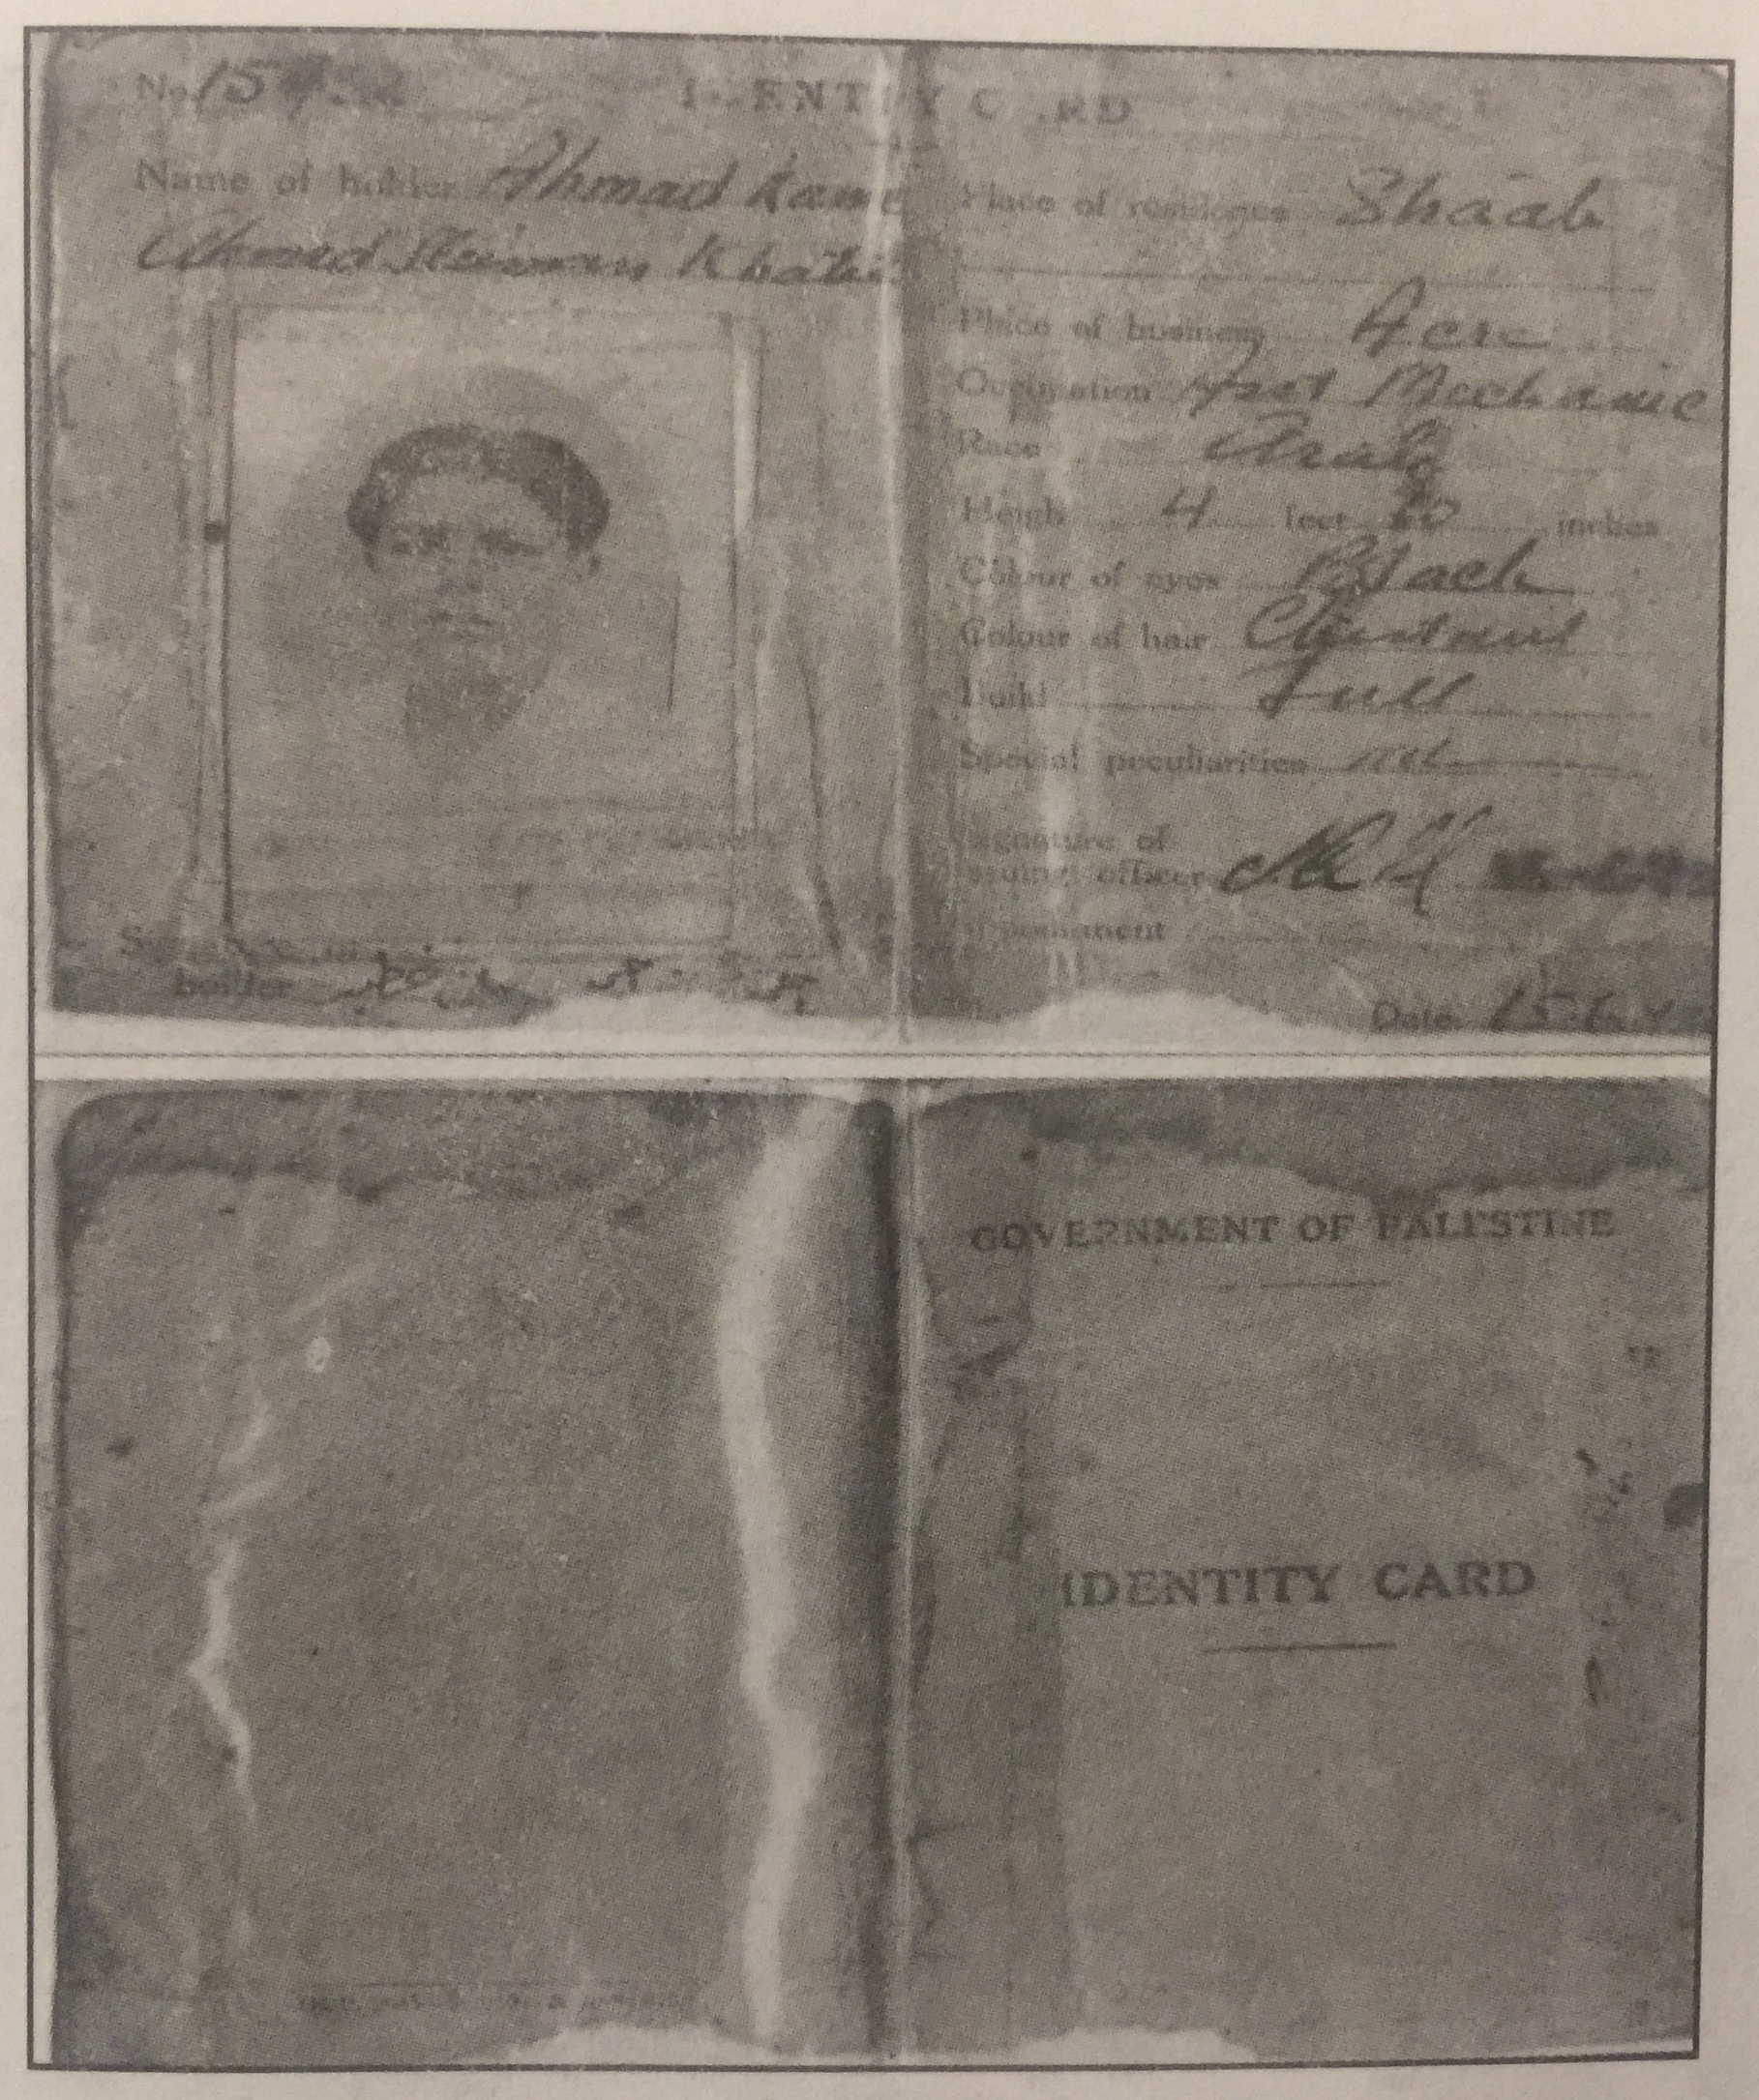 No.
IDENTITY CARD
Name of holder Ahmad Kame
Ahmad Sleiman Khatib
holder
Place of residence Shaab
Place of business Acre
Occupation Asst Mechanic
Race Arab
Heigh 4 feet inches
Colour of eyes Black
Colour of hair Chestnut
Build Full
Special peculiarities nil
Signature of
issuing officer
Appointment
Date
GOVERNMENT OF PALESTINE
IDENTITY CARD